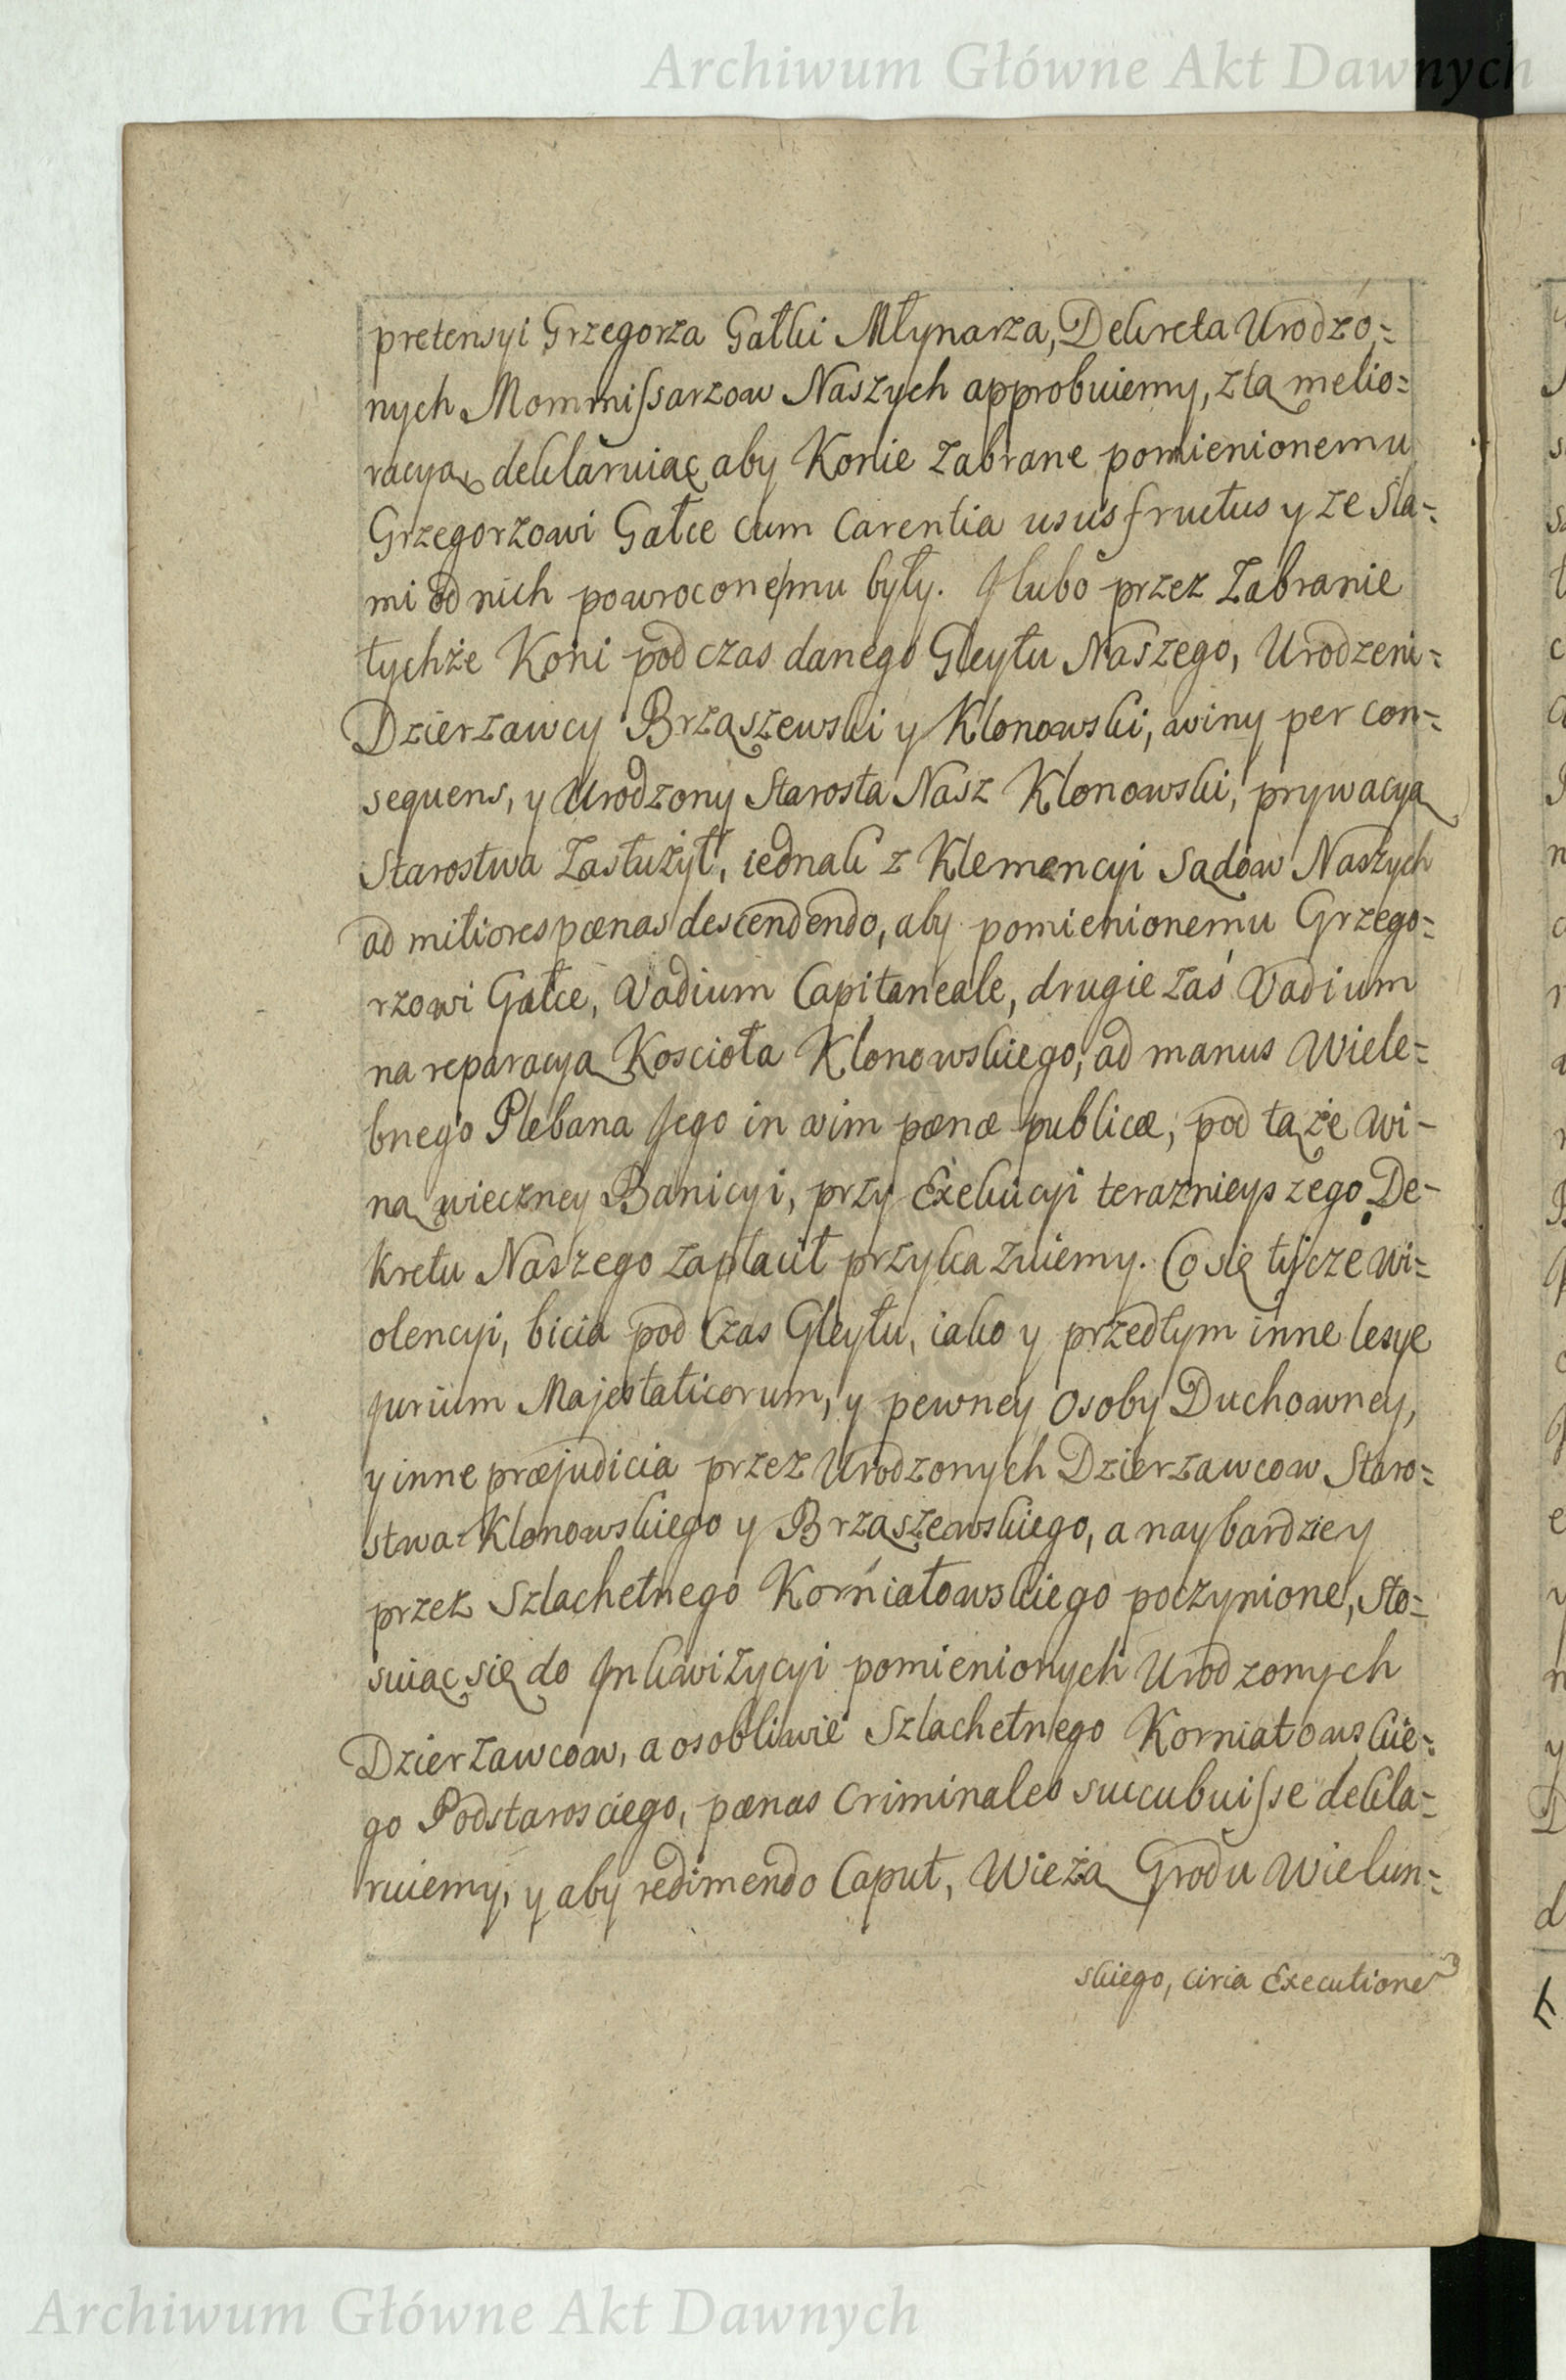 Archiwum Główne Akt Dawnych
pretensyi Grzegorza Gałki Młynarza, Dekreta Urodzo=
nych Mommissarzow Naszych approbuiemy, z tą melio=
racyą deklaruiąc aby Konie zabrane pomienionemu
Grzegorzowi Gałce cum Carentia usus fructus y ze Sla=
mi od nich powrocone mu były. J lubo przez Zabranie
tychże Koni pod czas danego Gleytu Naszego, Urodzeni=
Dzierzawcy Brząszewski y Klonowski, winy per con=
sequens, y Urodzony Starosta Nasz Klonowski, prywacyą
Starostwa Zasłużył, iednak z Klemencyi Sądow Naszych
ad mitiores pœnas descendendo, aby pomienionemu Grzego=
rzowi Gałce, Vadium Capitaneale, drugie zaś Vadium
na reparacyą Koscioła Klonowskiego, ad manus Wiele=
bnego Plebana Jego in vim pœnæ publicæ, pod tąże Wi-
ną wieczney Banicyi, przy Exekucyi teraznieyszego De-
kretu Naszego zapłacił przykazuiemy. Co się tycze Wi=
olencyi, bicia pod Czas Gleytu, iako y przedtym inne lesye
jurium Majestaticorum, y pewney Osoby Duchowney,
y inne præjudicia przez Urodzonych Dzierzawcow Staro=
stwa Klonowskiego y Brząszewskiego, a naybardziey
przez Szlachetnego Korniatowskiego poczynione, Sto=
suiąc się do Jnkwizycyi pomienionych Urodzonych
Dzierzawcow, a osobliwie Szlachetnego Korniatowskie=
go Podstarosciego, pœnas Criminales succubuisse dekla=
ruiemy, y aby redimendo Caput, Wieżą Grodu Wielun=
skiego, circa Executione
Archiwum Główne Akt Dawnych